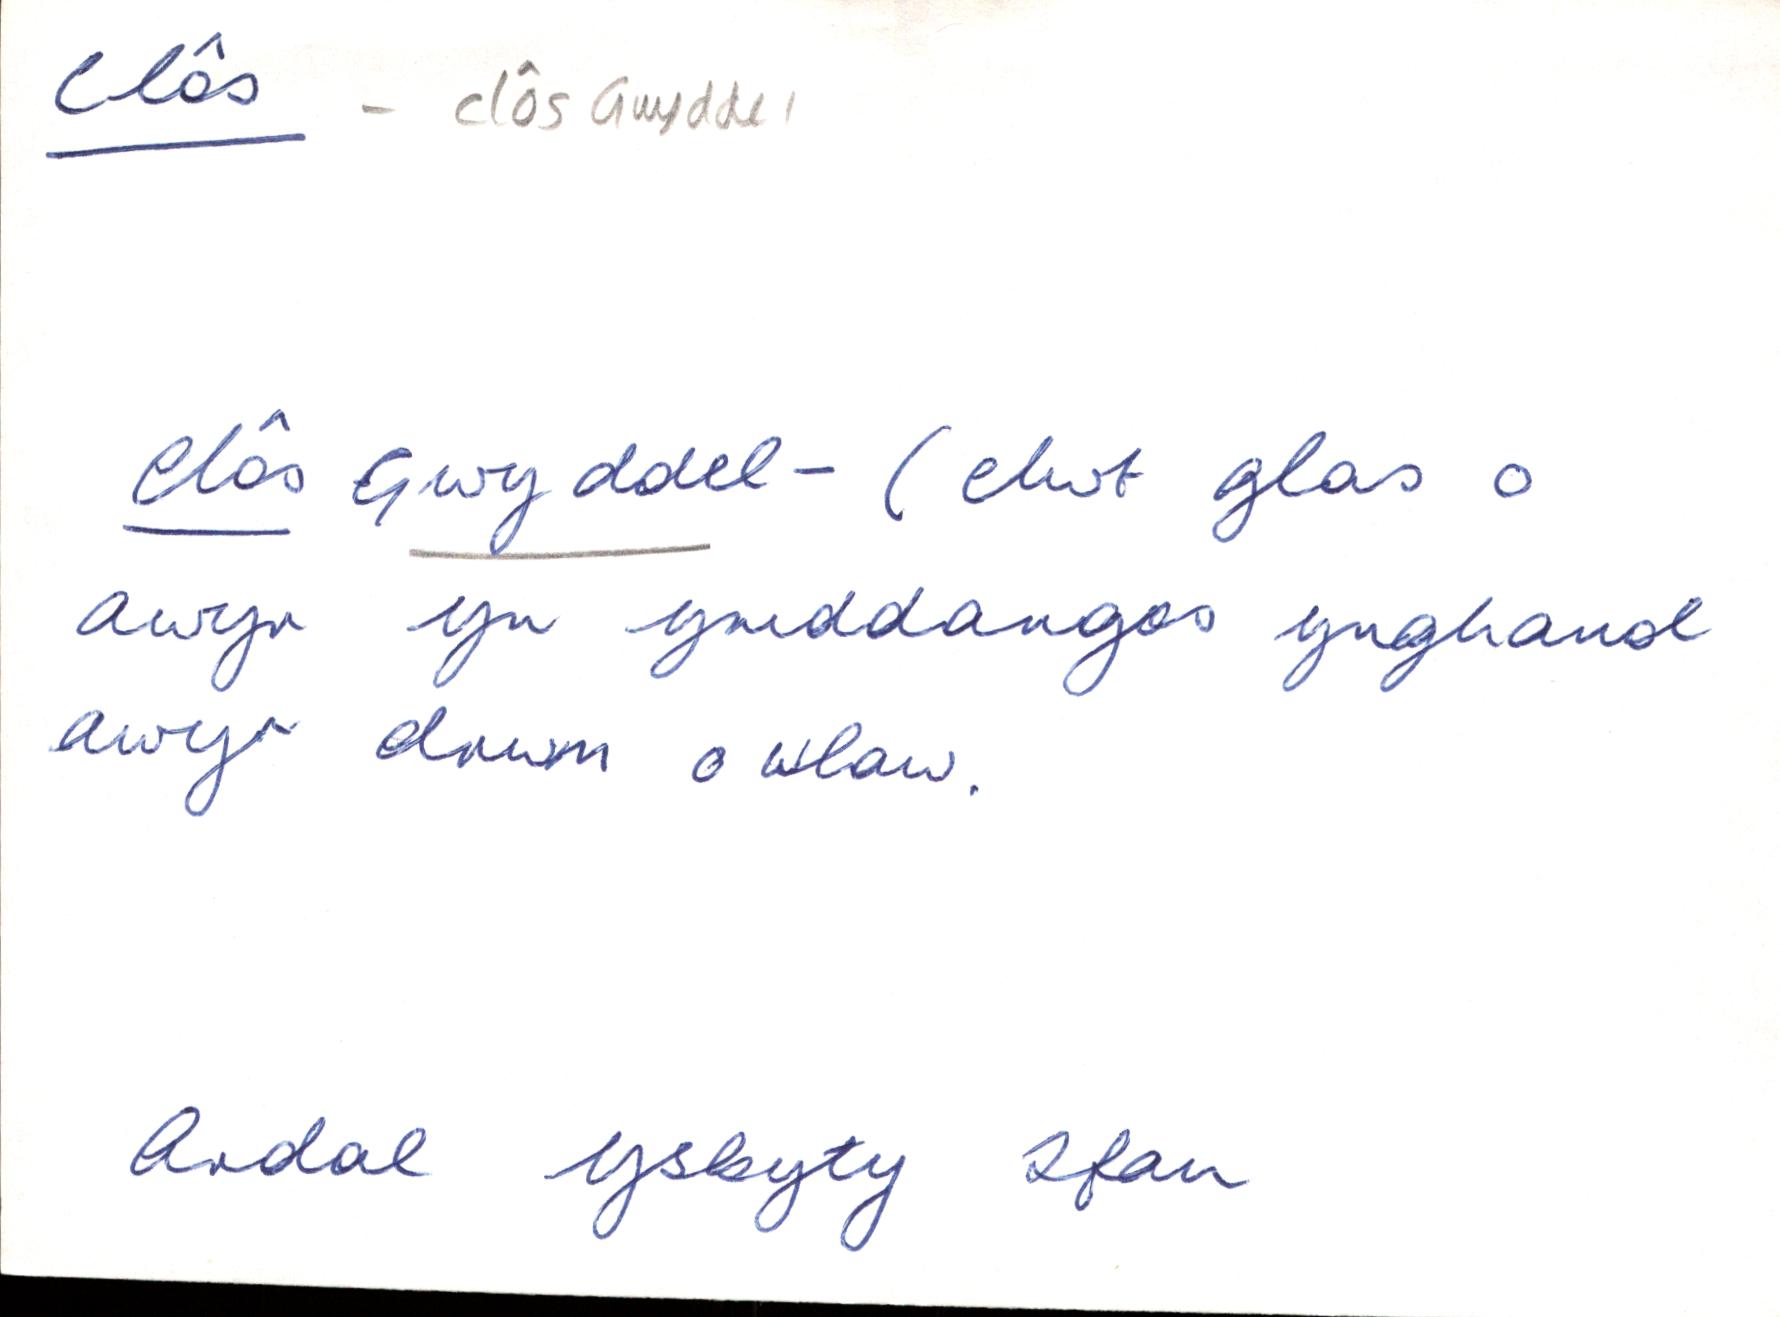 Clôs - clôs Gwyddel
Clôs Gwyddel - (clwt glas o
awyr yn ymddangos ynghanol
awyr drwm o wlaw.
Ardal Ysbyty Ifan